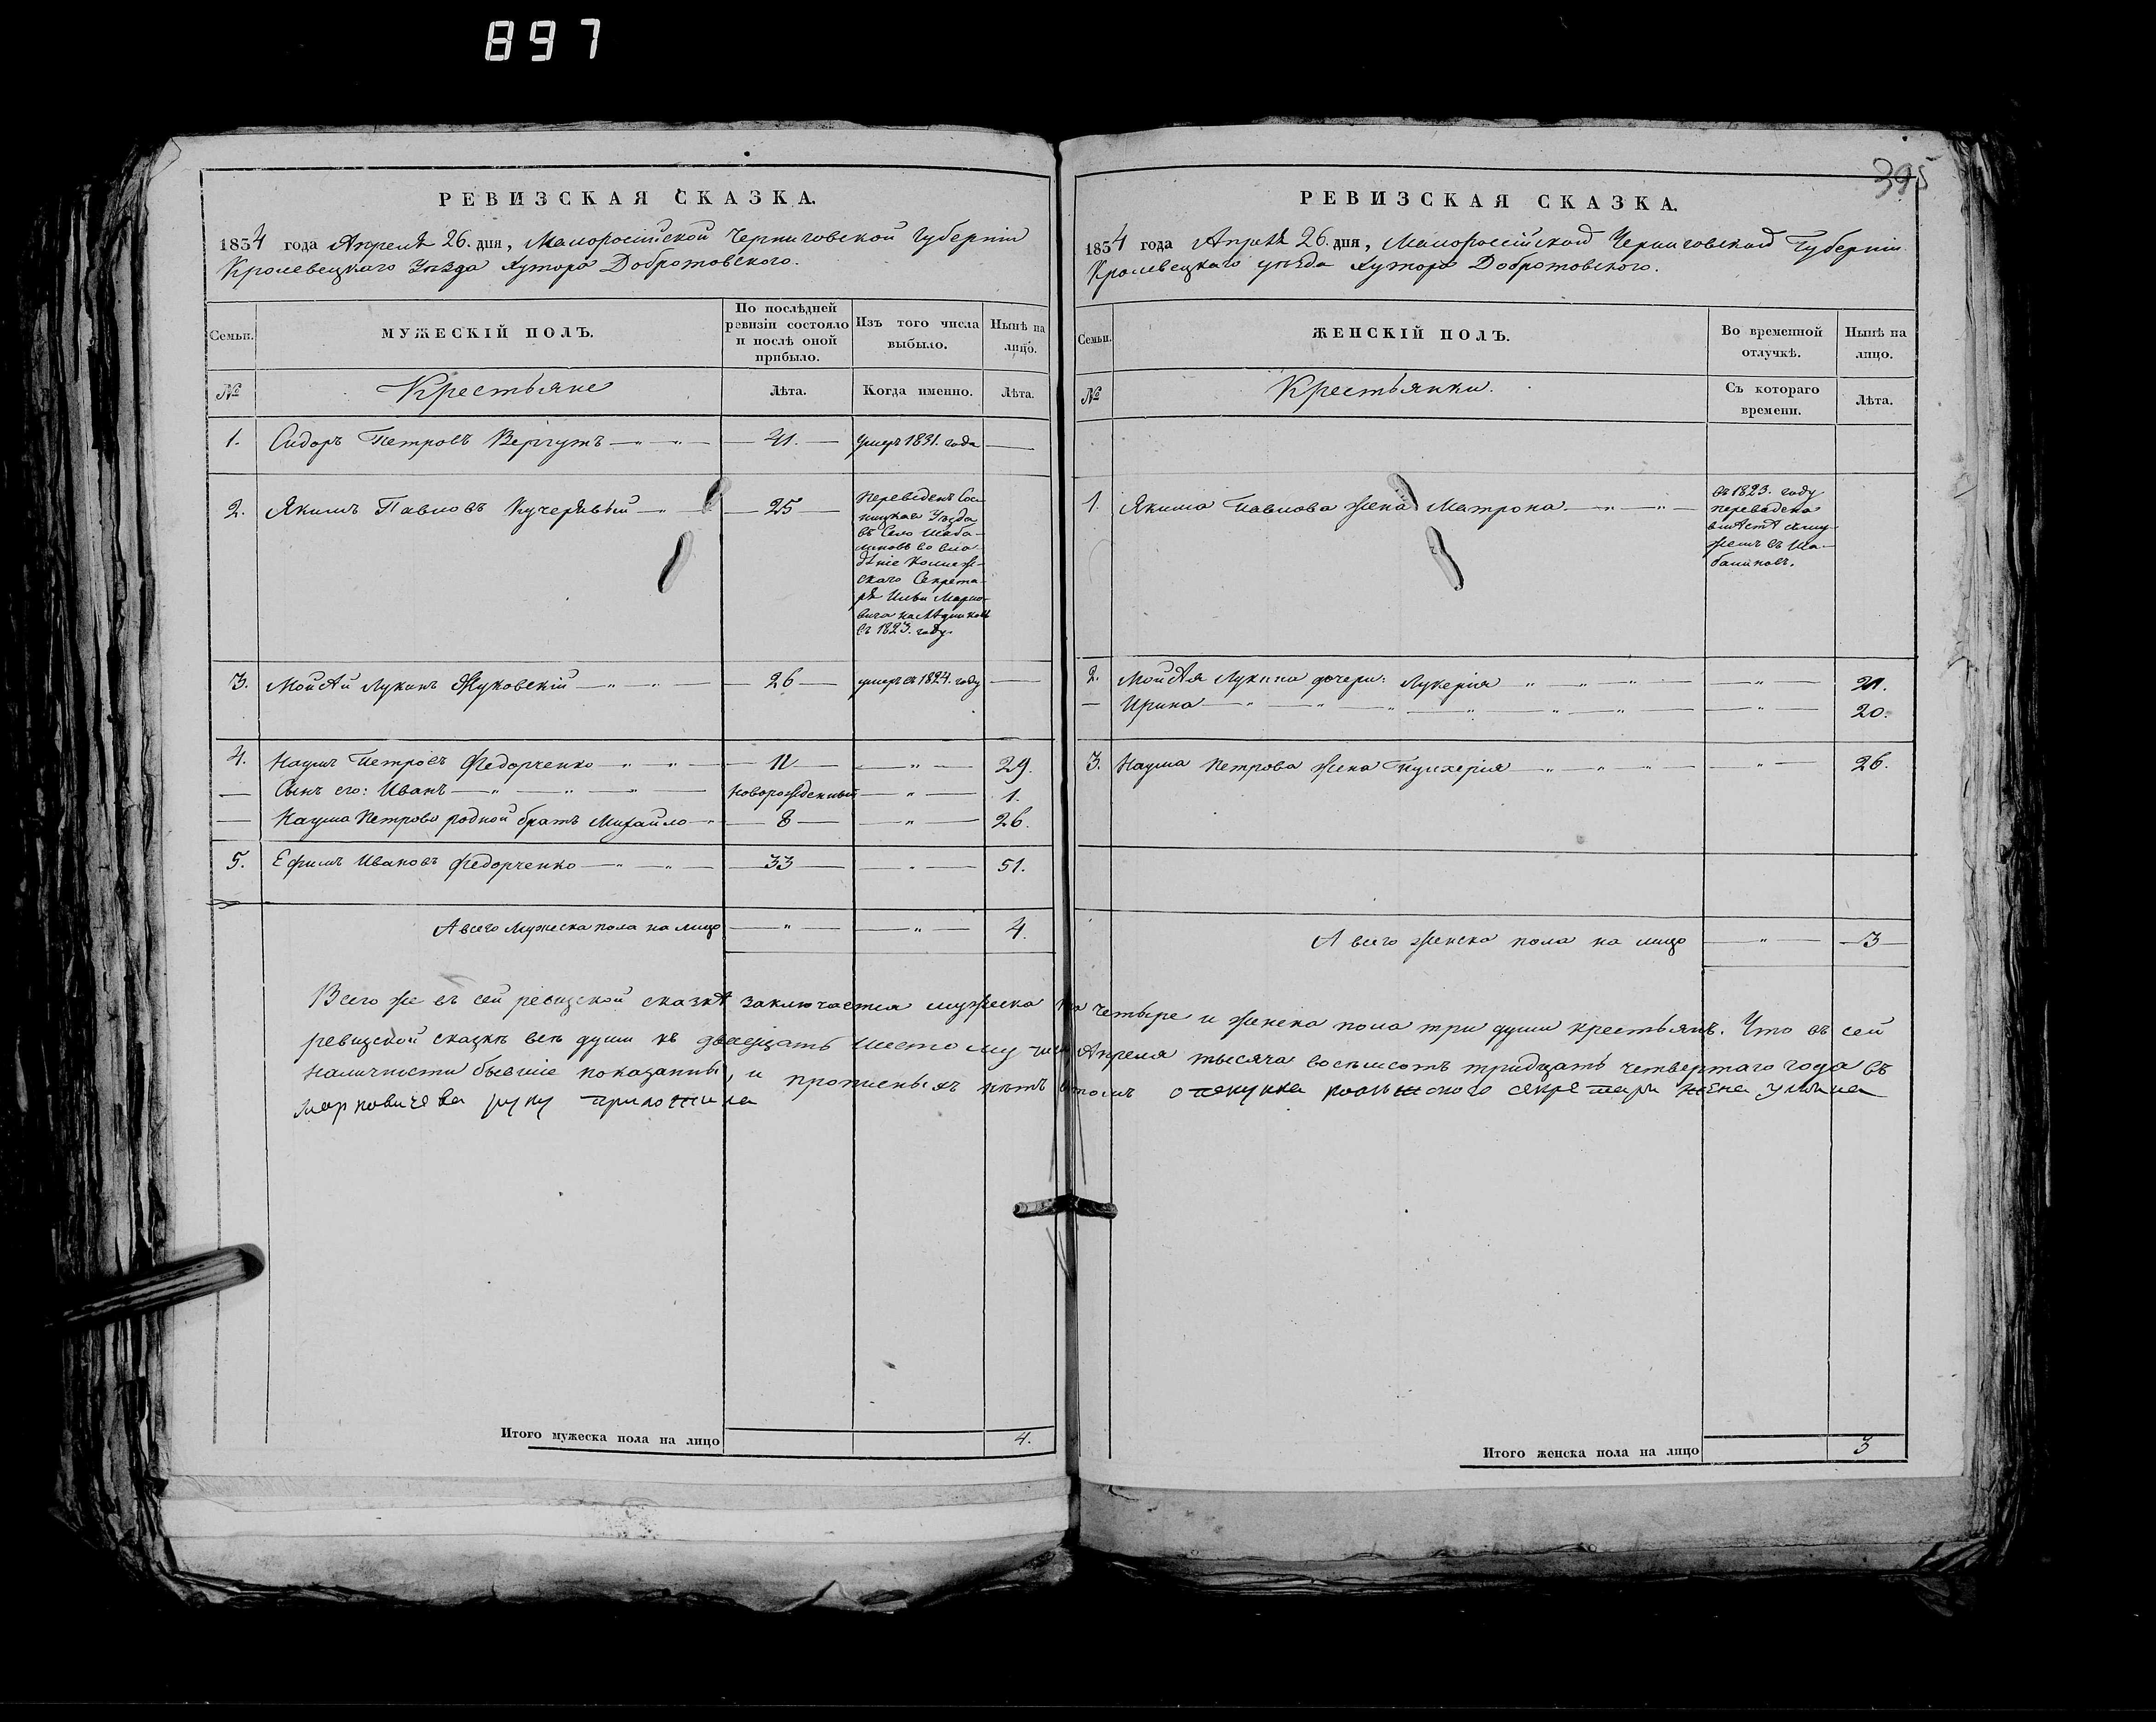 897
РЕВИЗСКАЯ СКАЗКА.
1834 года Апреля 26. дня, Малоросійской Черниговской Губерніи
Кролевецкаго Уѣзда Хутора Добротовского.
Семьи.
МУЖЕСКІЙ ПОЛЪ.
По послѣдней ревизіи состояло и послѣ оной прибыло.
Изъ того числа выбыло.
Нынѣ на лицо.
№
Крестьяне
Лѣта.
Когда именно.
Лѣта.
1. Сидоръ Петровъ Вергунъ 41. умеръ 1831. года
2. Якимъ Павловъ Кучерявый 25
Переведенъ Сос-
ницкаго Уѣзда
въ Село Шаба-
линовъ во вла-
дѣніе Коллеж-
скаго Секрета-
ря Ильи Марко-
вича наслѣдниковъ
въ 1823. году.
3. Мойсѣй Лукинъ Жуковскій 26 умеръ въ 1824. году
4. Наумъ Петровъ Федорченко 11 29.
Сынъ его: Иванъ новорожденный 1.
Наума Петрова родной братъ Михайло 8 26.
5. Ефимъ Ивановъ Федорченко 33 51.
А всего Мужеска пола на лицо 4.
Итого мужеска пола на лицо 4.
395
РЕВИЗСКАЯ СКАЗКА.
1834 года Апреля 26. дня, Малороссійской Черниговской Губерніи
Кролевецкаго уѣзда Хутора Добротовского.
Семьи.
ЖЕНСКІЙ ПОЛЪ.
Во временной отлучкѣ.
Нынѣ на лицо.
№
Крестьянки.
Съ котораго времени.
Лѣта.
1. Якима Павлова жена Матрона
въ 1823. году
переведена
вмѣстѣ с му-
жемъ въ Ша-
балиновъ.
2. Мойсѣя Лукина дочери: Лукерія 21.
Ирина 20.
3. Наума Петрова жена Пулхерія 26.
А всего женска пола на лицо 3
Всего же въ сей ревизской сказкѣ заключается мужеска четыре и женска пола три души крестьянъ. Что въ сей
ревизской сказкѣ всѣ души къ двадцать шестому Апреля тысяча восемьсотъ тридцать четвертаго года въ
наличности бывшіе показанны, и прописныхъ нѣтъ втомъ опекунка секретаря жена Ульяна
марковичева руку приложила
Итого женска пола на лицо 3